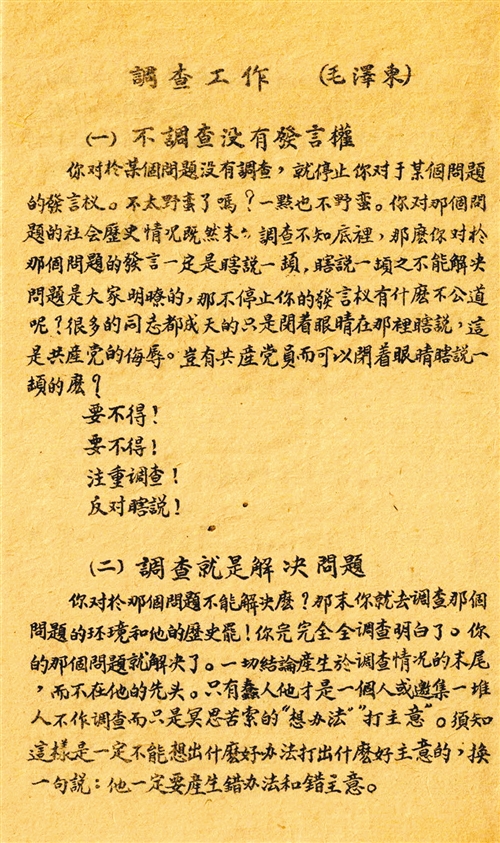 調查工作 (毛澤東)
(一) 不調查没有發言權
你对於某個問題没有調查，就停止你对于某個問題
的發言权。不太野蛮了嗎？一點也不野蛮。你对那個問
題的社会歷史情况既然未调查不知底裡，那麽你对於
那個問題的發言一定是瞎説一頭，瞎説一頭之不能解决
問題是大家明瞭的，那不停止你的發言权有什麽不公道
呢？很多的同志都成天的只是閉着眼睛在那裡瞎説，這
是共産党的侮辱。豈有共産党員而可以閉着眼睛瞎説一
頭的麽？
要不得！
要不得！
注重调查！
反对瞎説！
(二) 調查就是解决問題
你对於那個問題不能解决麽？那末你就去调查那個
問題的环境和他的歷史罷！你完完全全调查明白了。你
的那個問題就解决了。一切結論産生於调查情况的末尾
，而不在他的先头。只有蠢人他才是一個人或邀集一堆
人不作調查而只是冥思苦索的“想办法”“打主意”。須知
這樣是一定不能想出什麽好办法打出什麽好主意的，換
一句説：他一定要産生錯办法和錯主意。